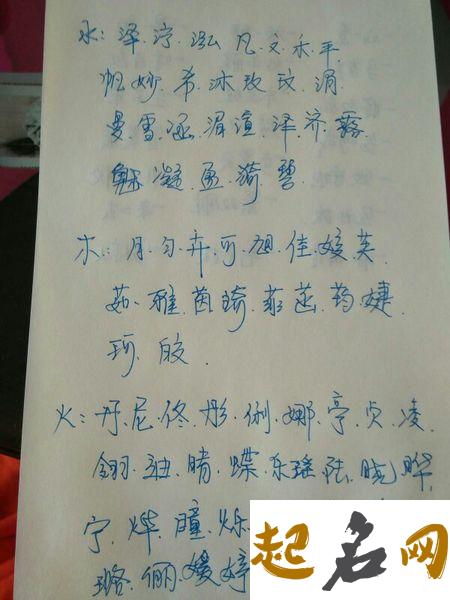 水：泽.泞.泓.凡.文.禾.平.
帆妙.希.沐玫.玟.湄
曼雪.涵.湄渲.泽.济.露.
魅.凝.盈.漪.碧.
木：月.匀.卉.可.旭.佳.媛.芙
茹.雅.茵.琦.菲.菡.药.婕.
珂.皎.
火：丹.尼.佟.彤.俐.娜.亭.贞.凌.
翎.迪.晴.蝶.东瑶.陆.晓.晔.
宁.烨.瞳.烁
璐.俪.嫒.婷
起名网